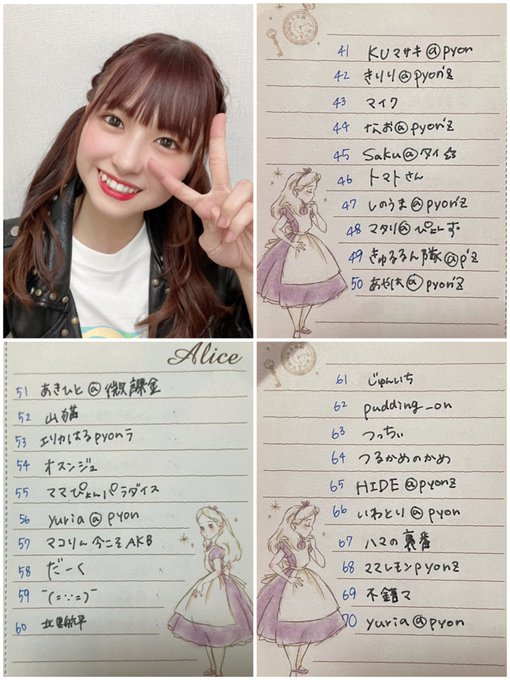 41 KUマサキ@pyon
42 きりり@pyon'z
43 マイク
44 なお@pyon'z
45 Saku@タイ
46 トマトさん
47 しのうま@pyon'z
48 マタリ@ぴょんず
49 きゅるるん隊@p'z
50 あやは@pyon'z
Alice
51 あきひと@微課金
52 山猫
53 エリカはるpyonラ
54 オスンジュ
55 ママぴょんパラダイス
56 yuria@pyon
57 マコりん今こそAKB
58 だーく
59 ¯(=∵=)¯
60
61 じゅんいち
62 pudding_on
63 つっちぃ
64 つるかめのかめ
65 HIDE@pyonz
66 いわとり@pyon
67 ハマの裏番
68 ママレモンpyonz
69
70 yuria@pyon